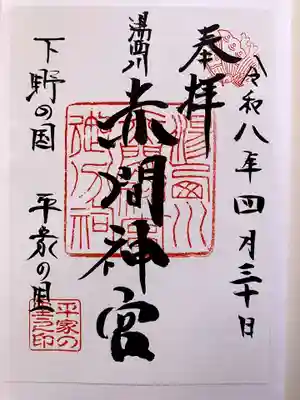 令和八年四月三十日
奉拝
湯西川
赤間神宮
平家の里
下野の国
平家の里之印